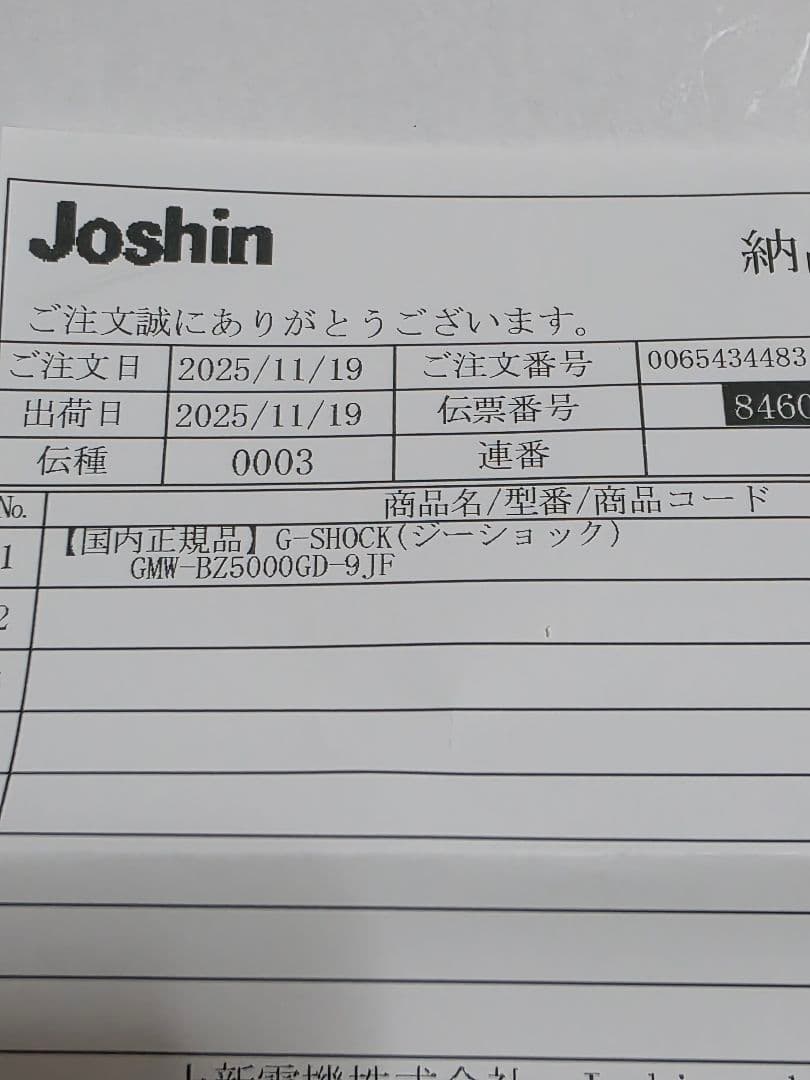 Joshin
納
ご注文誠にありがとうございます。
ご注文日 2025/11/19 ご注文番号 0065434483
出荷日 2025/11/19 伝票番号 8460
伝種 0003 連番
No. 商品名/型番/商品コード
1 【国内正規品】G-SHOCK(ジーショック)
GMW-BZ5000GD-9JF
2
上新電機株式会社